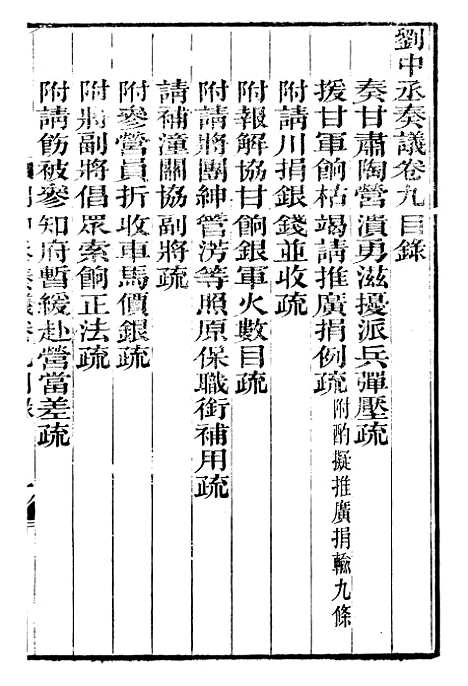 劉中丞奏議卷九目錄
奏甘肅陶營潰勇滋擾派兵彈壓疏
援甘軍餉枯竭請推廣捐例疏附酌擬推廣捐輸九條
附請川捐銀錢並收疏
附報解協甘餉銀軍火數目疏
附請將團紳管涝等照原保職銜補用疏
請補潼關協副將疏
附參營員折收車馬價銀疏
附將副將倡眾索餉正法疏
附請飭被參知府暫緩赴營當差疏